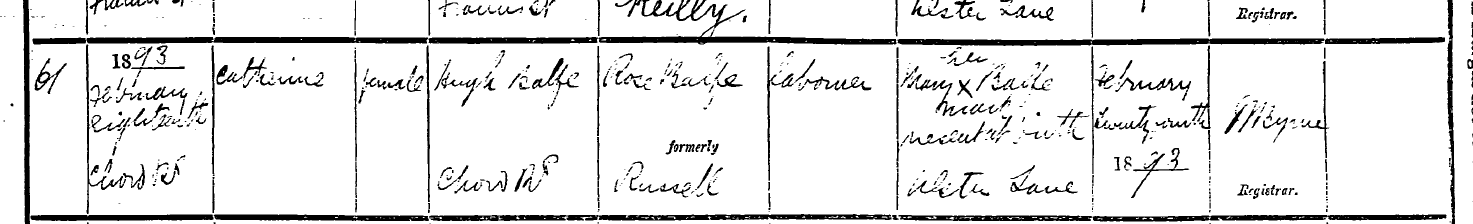 Reilly.
Ulster Lane
Registrar.
61
1893
February
eighteenth
Chord Rd
Catherine
female
Hugh Balfe
Chord Rd
Rose Balfe
formerly
Russell
Labourer
her
Mary X Balfe
mark
present at birth
Ulster Lane
February
1893
Registrar.